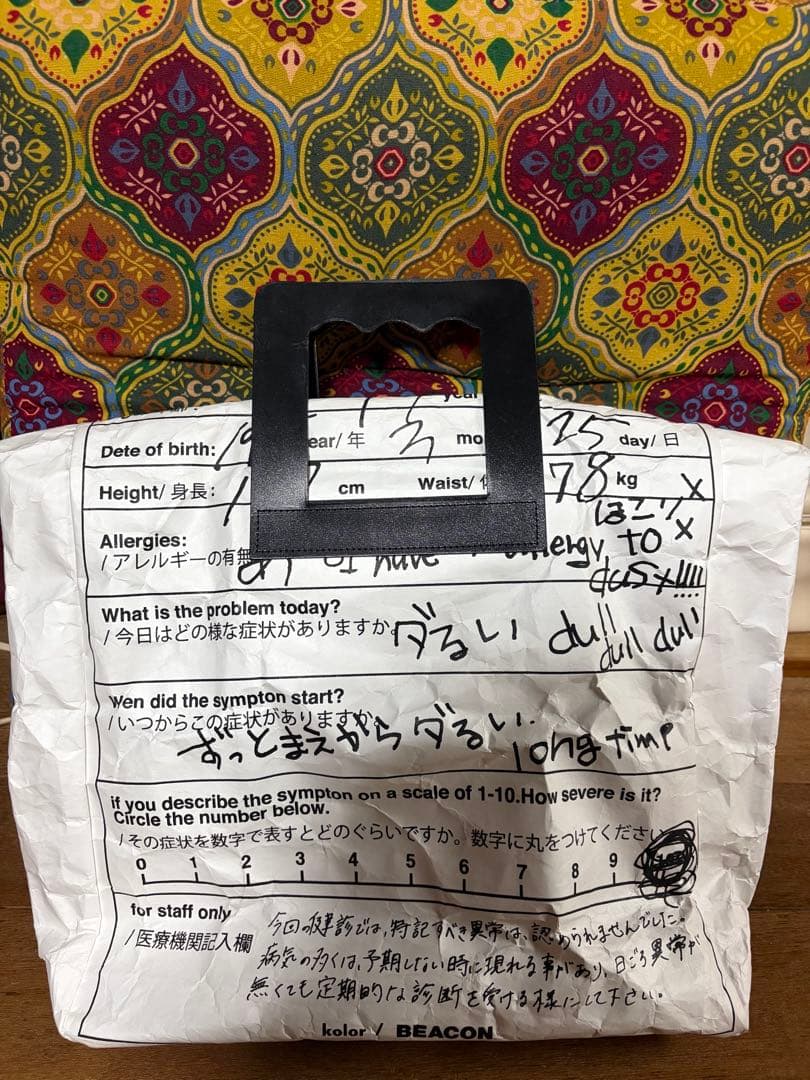 year
Dete of birth: 19 ear/年 3 mo 25 day/日
Height/身長: 1 cm Waist/ 78 kg
ほこり
Allergies:
/アレルギーの有無 あり I have allergy to
dust!!!!
What is the problem today?
/今日はどの様な症状がありますか ダるい dull
dull dull
wen did the sympton start?
/いつからこの症状がありますか。
ずっとまえからダるい. long time
if you describe the sympton on a scale of 1-10.How severe is it?
Circle the number below.
/その症状を数字で表すとどのぐらいですか。数字に丸をつけてください
0 1 2 3 4 5 6 7 8 9
for staff only
/医療機関記入欄
今回の健診では、特記すべき異常は、認められませんでした。
病気の多くは、予期しない時に現れる事があり、日ごろ異常が
無くても定期的な診断を受ける様にして下さい。
kolor / BEACON